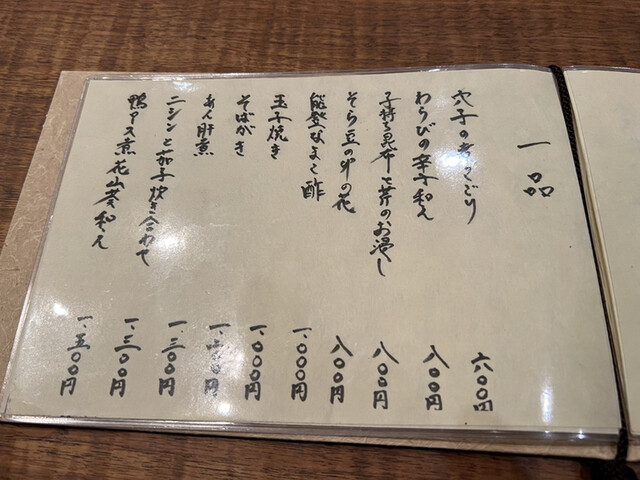 一品
穴子の煮こごり 六〇〇円
わらびの辛子和え 八〇〇円
子持ち昆布と芹のお浸し 八〇〇円
そら豆の卯の花 八〇〇円
能登なまこ酢 一、〇〇〇円
玉子焼き 一、〇〇〇円
そばがき 一、二〇〇円
あん肝煮 一、三〇〇円
ニシンと茄子炊き合わせ 一、三〇〇円
鴨ロース煮 花山葵和え 一、五〇〇円